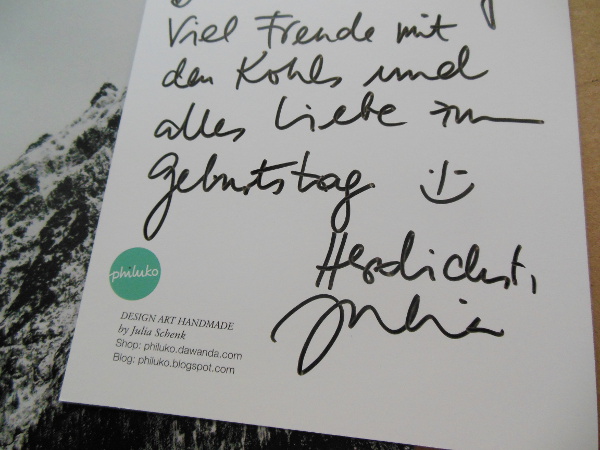 Viel Freude mit
den Kohls und
alles Liebe zum
Geburtstag :-)
Herzlichst,
Julia
philuko
DESIGN ART HANDMADE
by Julia Schenk
Shop: philuko.dawanda.com
Blog: philuko.blogspot.com